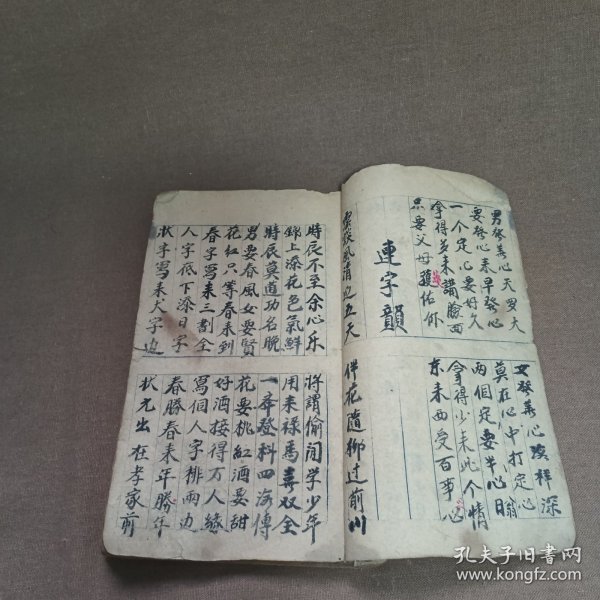 男發善心天多大
要發心來早發心
一个定心要好久
拿得多來謂臉西
只要父母護佑你
女發善心發祥深
莫在心中打定心
两個定要半心日
拿得少来此个情
东来西受百事心
連字韻
雲淡風清近五天
伴花隨柳过前川
時辰不至余心乐
將謂偷閒学少年
錦上添花色氣鮮
用来禄馬喜双全
時辰莫道功名晚
一举登科四海傳
男要春風女要賢
花要桃紅酒要甜
花红只等春来到
好酒接得万人缘
春字寫来三劃全
寫個人字排兩边
人字底下添日字
春勝春来年勝年
状字寫来大字边
状元出在孝家前
孔夫子旧書网
www.kongfz.com